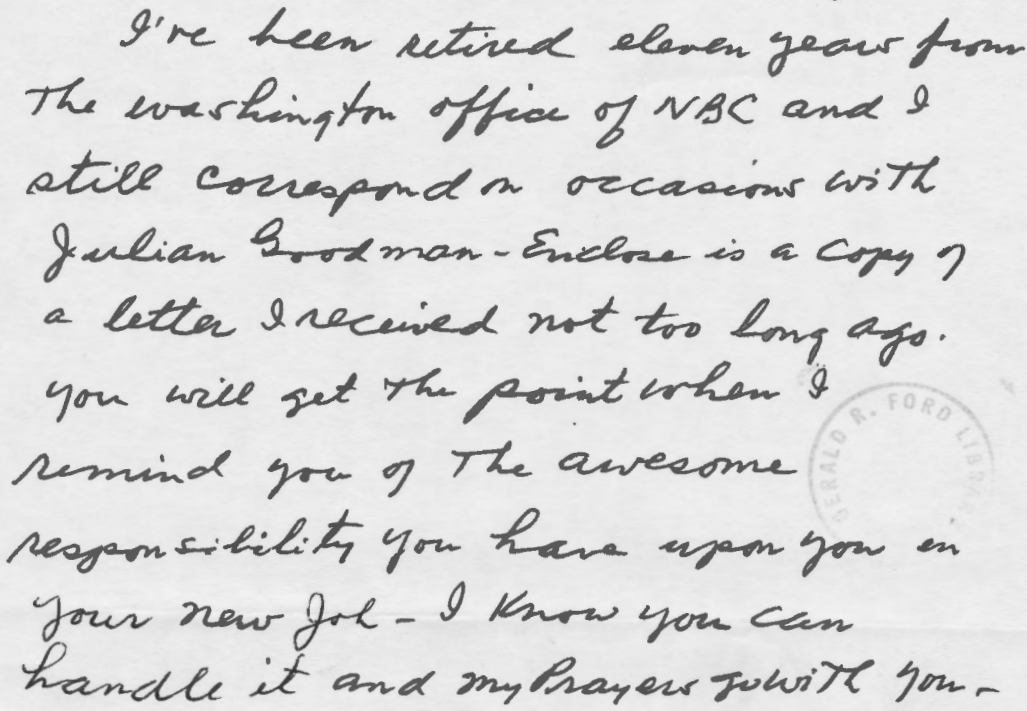 I've been retired eleven years from
The washington office of NBC and I
still correspond on occasions with
Julian Goodman - Enclose is a copy of
a letter I received not too long ago.
you will get the point when I
remind you of The awesome
responsibility you have upon you in
your new Job - I know you can
handle it and my Prayers go with you -
GERALD R. FORD LIBRARY